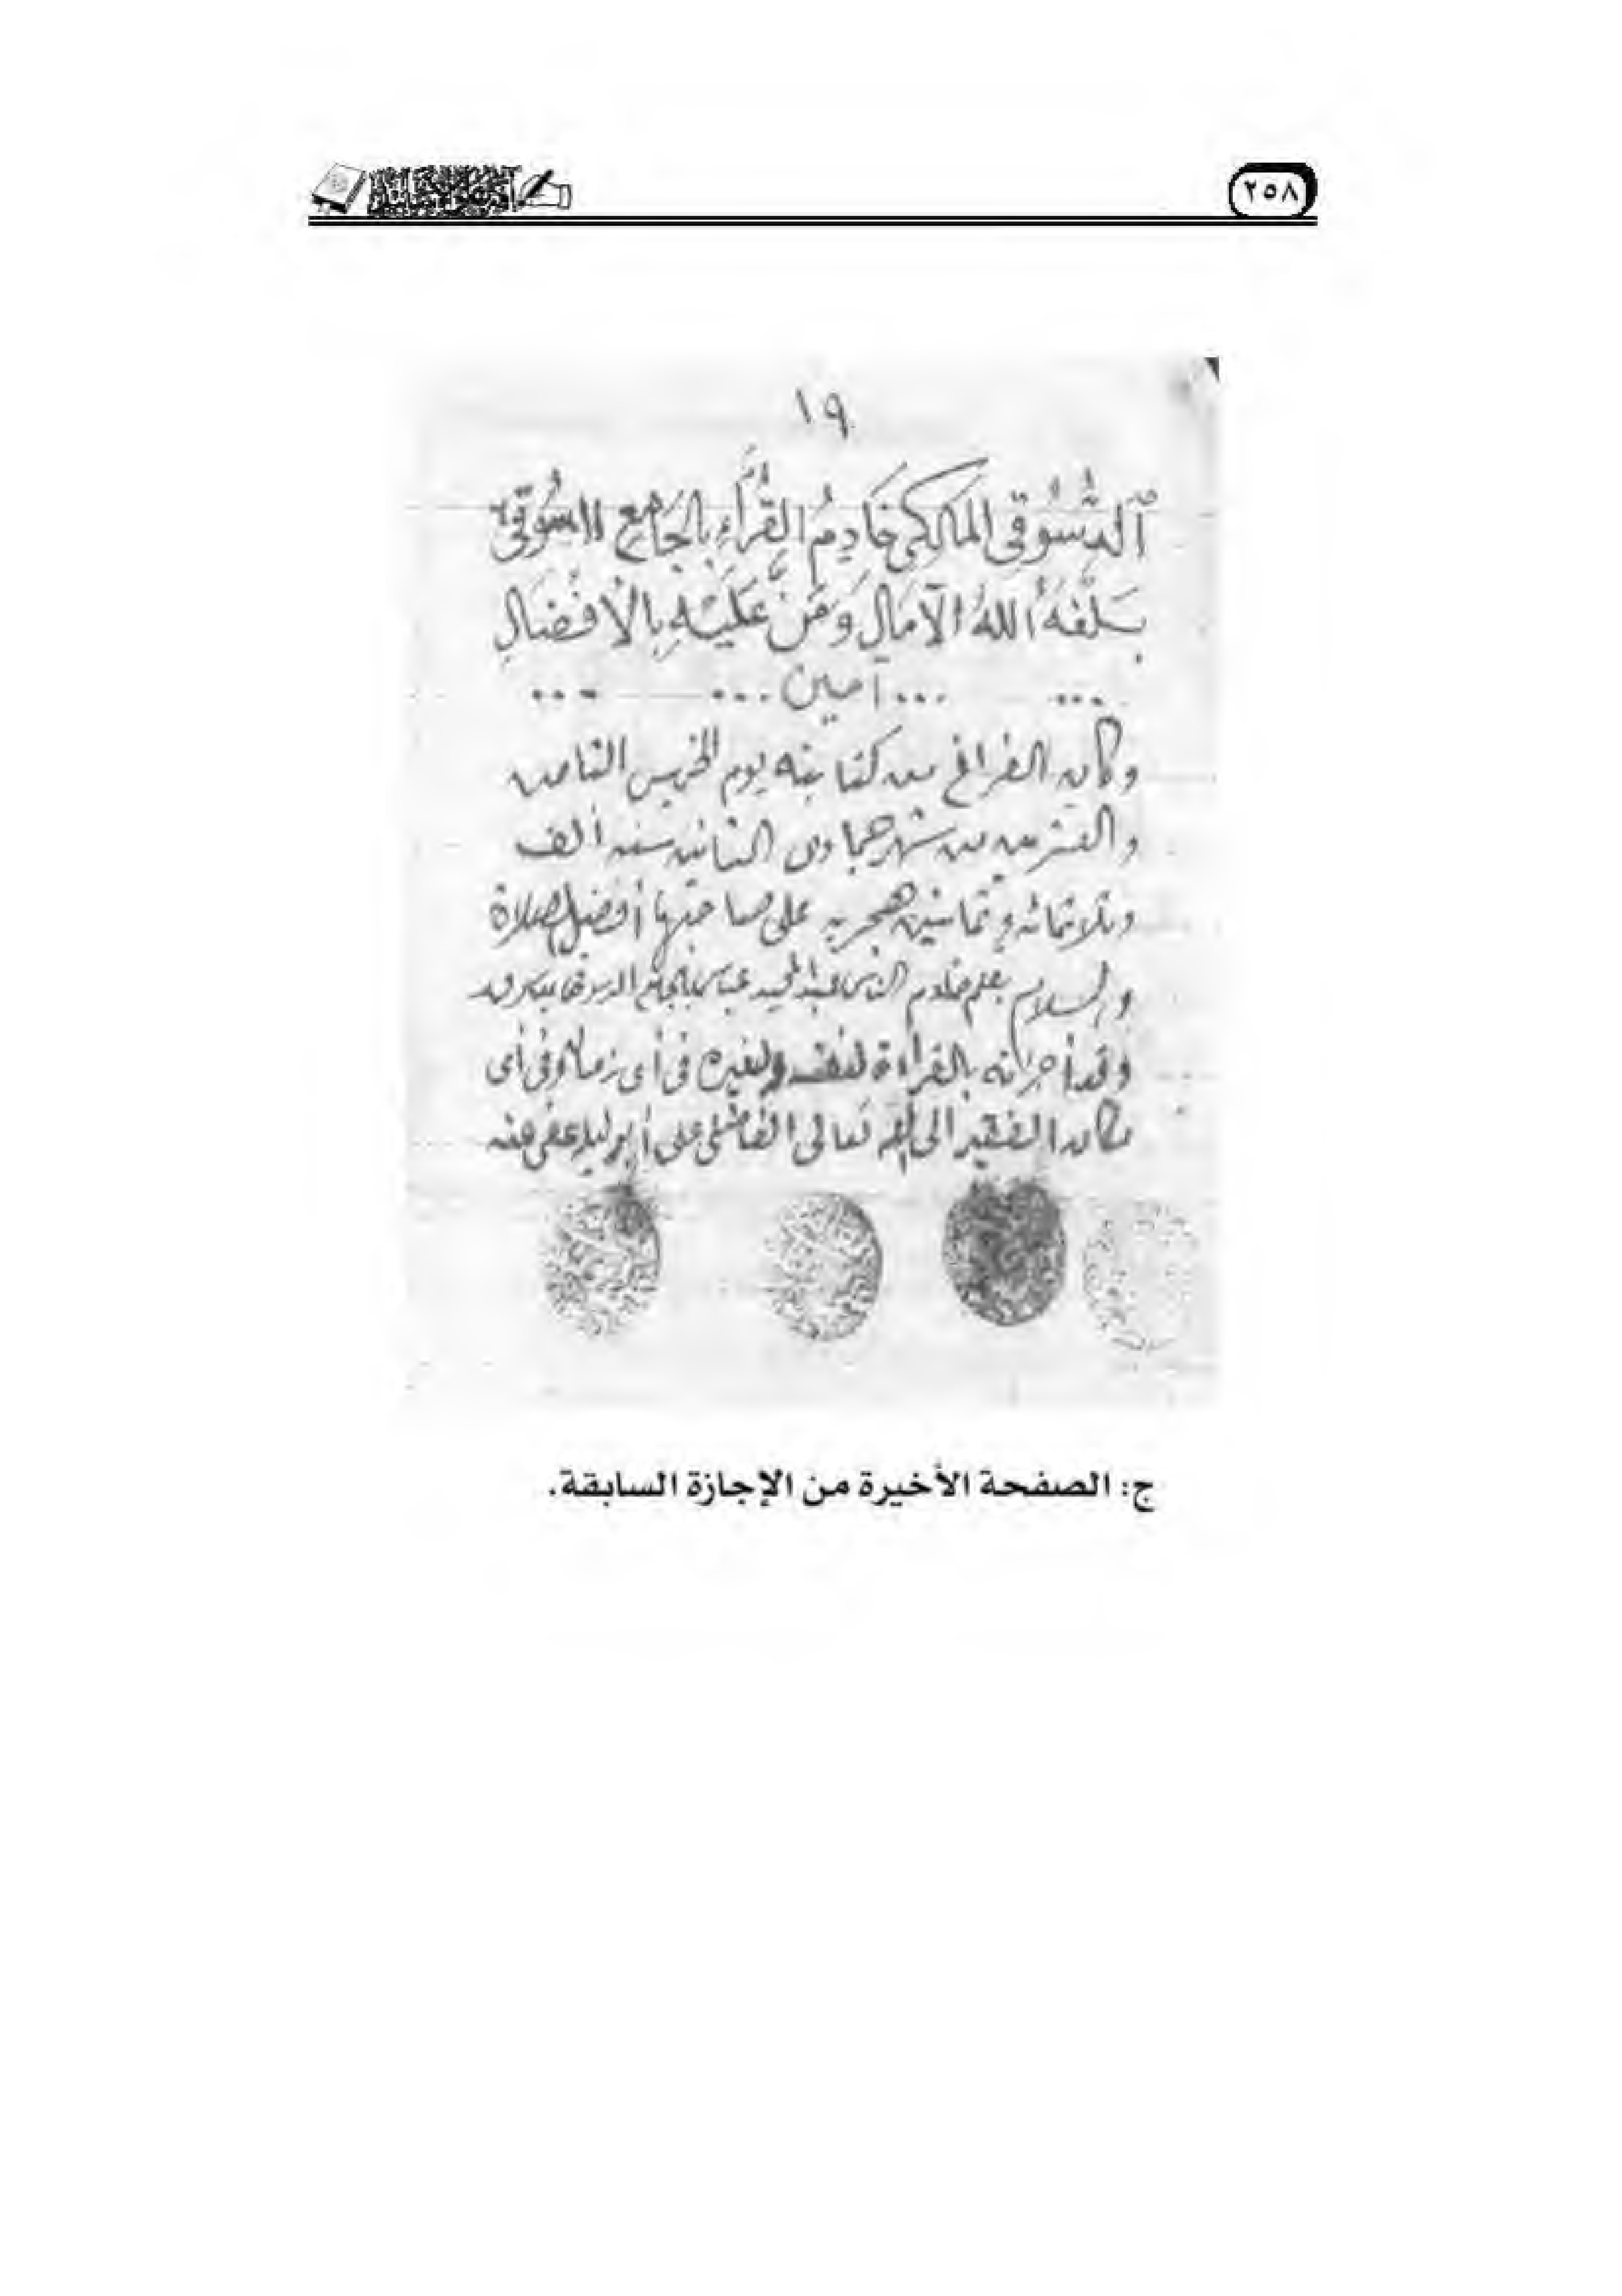 ٢٥٨
١٩
اَلدُّسُوقِى المَالِكِى خَادِمُ القُرَّاءِ بِالجَامِعِ الدسُوقِى
بَلَّغَهُ اللهُ الآمَالِ وَمَنَّ عَلَيْهِ بِالأفْضَالِ
... آمين ... ... ...
وكان الفراغ من كتابته يوم الخميس الثامن
والعشرين من شهر جمادى الثانية سنه ألف
وثلاثمائه وثمانين هجريه على صاحبها أفضل الصلاة
والسلام بقلم خادم القرآن عبد المجيد عباس بالجامع الدسوقى
وقد أجزته بالقراءة لنفسه ولغيره فى أى زمان وفى أى
مكان الفقير الى الله تعالى الفاضلى على أبو ليله عفى عنه
ج: الصفحة الأخيرة من الإجازة السابقة.